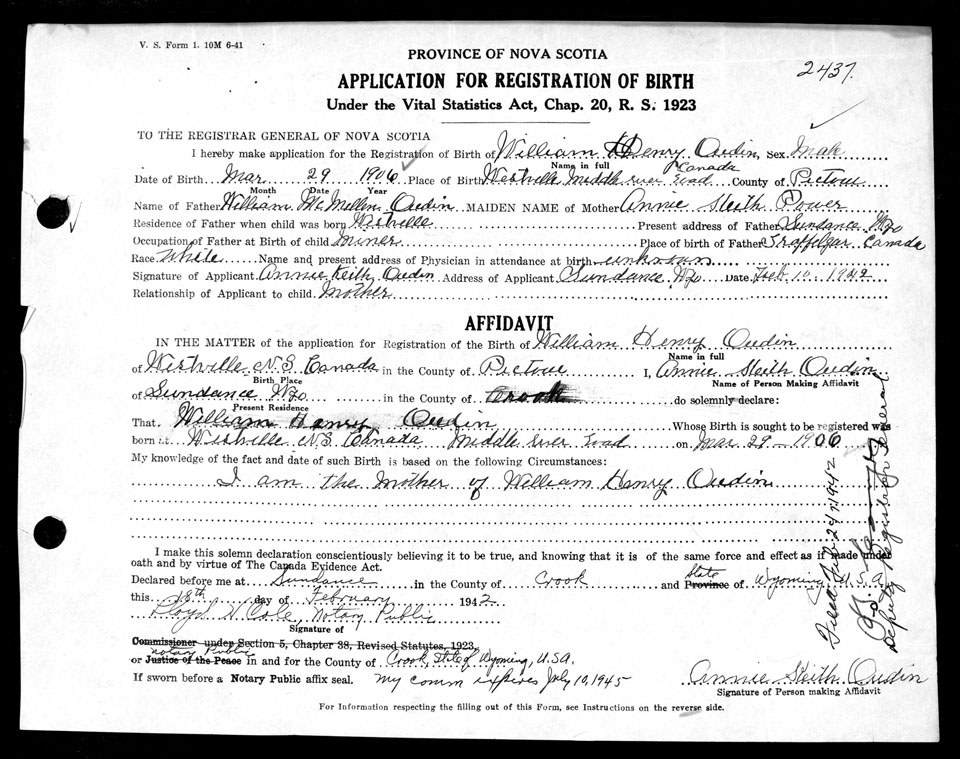 V. S. Form 1. 10M 6-41
PROVINCE OF NOVA SCOTIA
2437.
APPLICATION FOR REGISTRATION OF BIRTH
Under the Vital Statistics Act, Chap. 20, R. S. 1923
TO THE REGISTRAR GENERAL OF NOVA SCOTIA
I hereby make application for the Registration of Birth of William Henry Oudin, Sex Male
Name in full
Canada
Date of Birth Mar 29 1906 Place of Birth Westville Middle river road County of Pictou
Month Date Year
Name of Father William McMellen Oudin MAIDEN NAME of Mother Annie Sleith Power
Residence of Father when child was born Westville Present address of Father Sundance Wyo
Occupation of Father at Birth of child Miner Place of birth of Father Canada
Race White Name and present address of Physician in attendance at birth unknown
Signature of Applicant Annie Keith Oudin Address of Applicant Sundance Wyo Date Feb. 10. 1942
Relationship of Applicant to child Mother
AFFIDAVIT
IN THE MATTER of the application for Registration of the Birth of William Henry Oudin
Name in full
of Westville N.S. Canada in the County of Pictou I, Annie Sleith Oudin
Birth Place
Name of Person Making Affidavit
of Sundance Wyo in the County of Crook do solemnly declare:
Present Residence
That William Henry Oudin Whose Birth is sought to be registered was
born at Westville N.S. Canada Middle river road on Mar 29 - 1906
My knowledge of the fact and date of such Birth is based on the following Circumstances:
I am the Mother of William Henry Oudin
I make this solemn declaration conscientiously believing it to be true, and knowing that it is of the same force and effect as if made under
oath and by virtue of The Canada Evidence Act.
Declared before me at Sundance in the County of Crook and Province State of Wyoming U.S.A.
this 18th day of February 1942
Lloyd W. Cole, Notary Public
Signature of
Commissioner under Section 5, Chapter 38, Revised Statutes, 1923,
Notary Public
or Justice of the Peace in and for the County of Crook, State of Wyoming, U.S.A.
If sworn before a Notary Public affix seal. My comm expires July 10, 1945
Annie Sleith Oudin
Signature of Person making Affidavit
For Information respecting the filling out of this Form, see Instructions on the reverse side.
Filed Feb. 24 1942
Deputy Registrar General